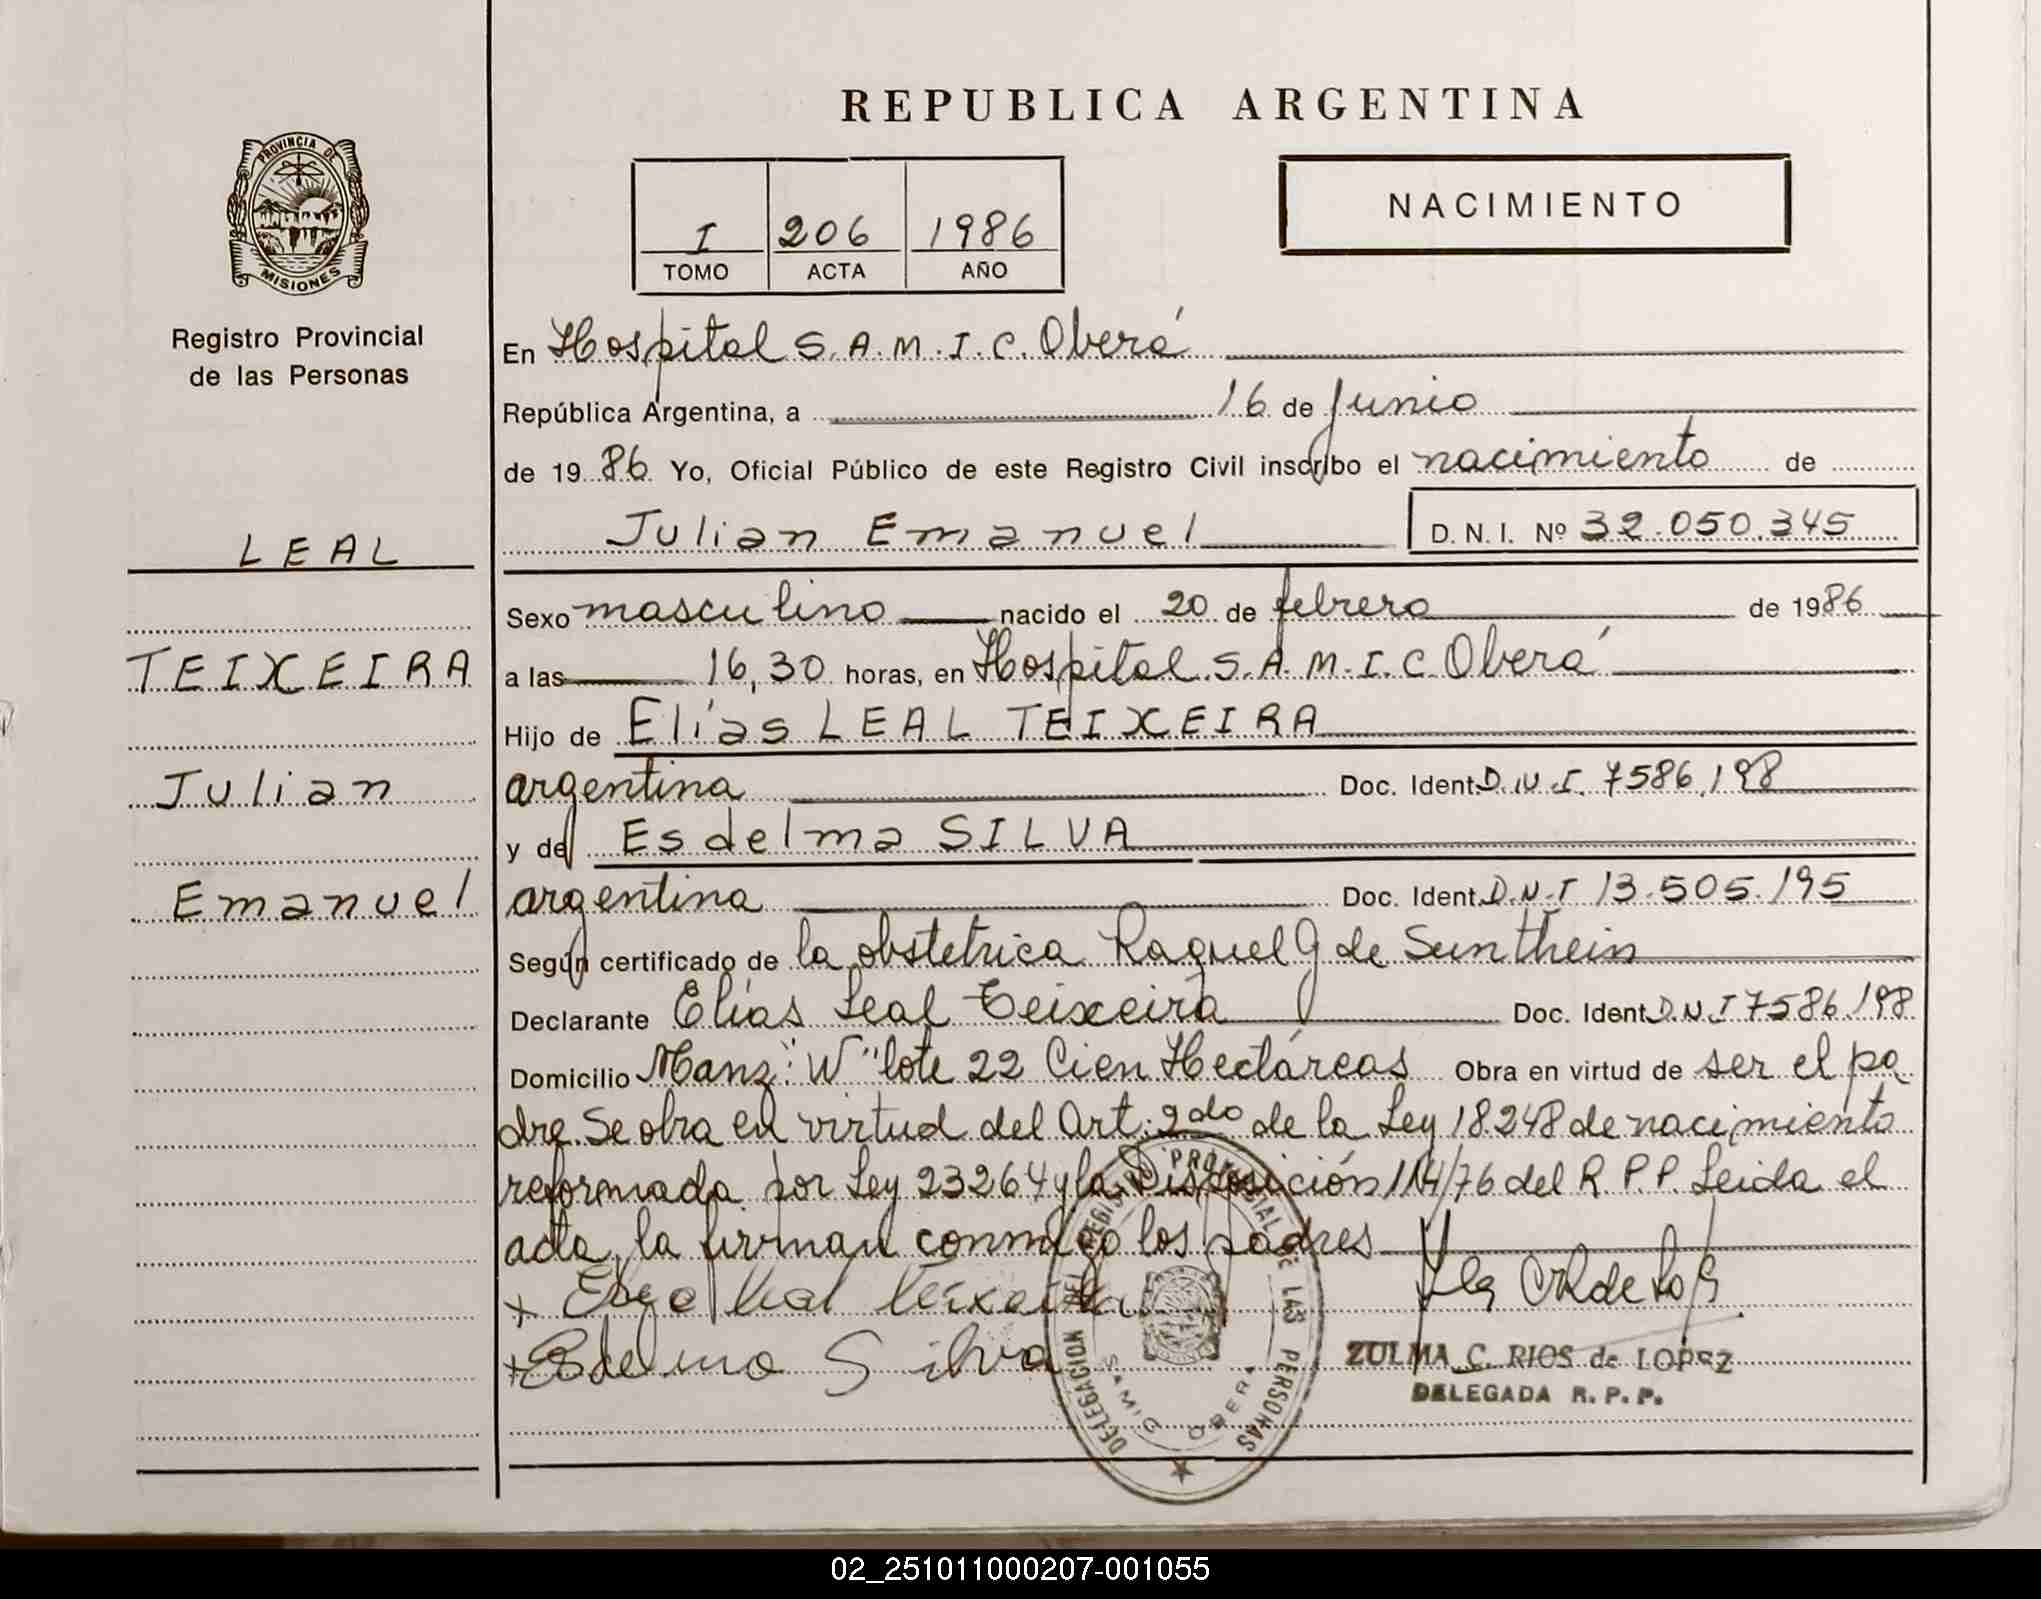 REPUBLICA ARGENTINA
PROVINCIA DE
MISIONES
Registro Provincial
de las Personas
I 206 1986
TOMO ACTA AÑO
NACIMIENTO
En Hospital S.A.M.I.C. Oberá
República Argentina, a 16 de Junio
de 19 86 Yo, Oficial Público de este Registro Civil inscribo el nacimiento de
Julian Emanuel D.N.I. Nº 32.050.345
LEAL
TEIXEIRA
Julian
Emanuel
Sexo masculino nacido el 20 de febrero de 1986
a las 16,30 horas, en Hospital S.A.M.I.C. Oberá
Hijo de Elías LEAL TEIXEIRA
argentina Doc. Ident. D.N.I. 7586.198
y de Esdelma SILVA
argentina Doc. Ident. D.N.I 13.505.195
Según certificado de la obstetrica Raquel G de Sunthein
Declarante Elías Leal Teixeira Doc. Ident. D.N.I 7586.198
Domicilio Manz "W" lote 22 Cien Hectáreas Obra en virtud de ser el pa
dre. Se obra en virtud del Art. 2do de la Ley 18.248 de nacimiento
reformada por Ley 23264 y la Disposición 114/76 del R.P.P. Leida el
acta, la firman conmigo los padres
+ Leal Teixeira
+ Esdelma Silva
DELEGACION DEL REGISTRO PROVINCIAL DE LAS PERSONAS
SAMIC OBERA
ZULMA C. RIOS de LOPEZ
DELEGADA R.P.P.
02_251011000207-001055